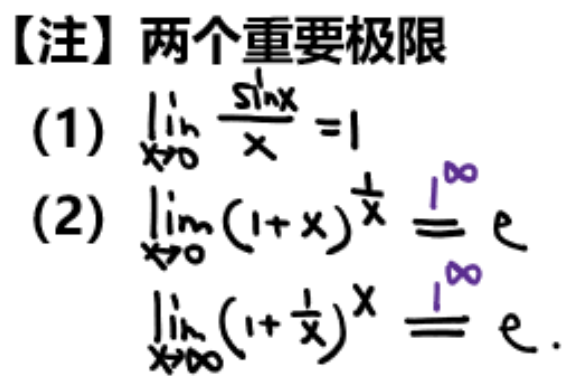 【注】两个重要极限
(1) lim x→0 sinx/x = 1
(2) lim x→0 (1+x)^(1/x) =(1^∞) e
lim x→∞ (1+1/x)^x =(1^∞) e.